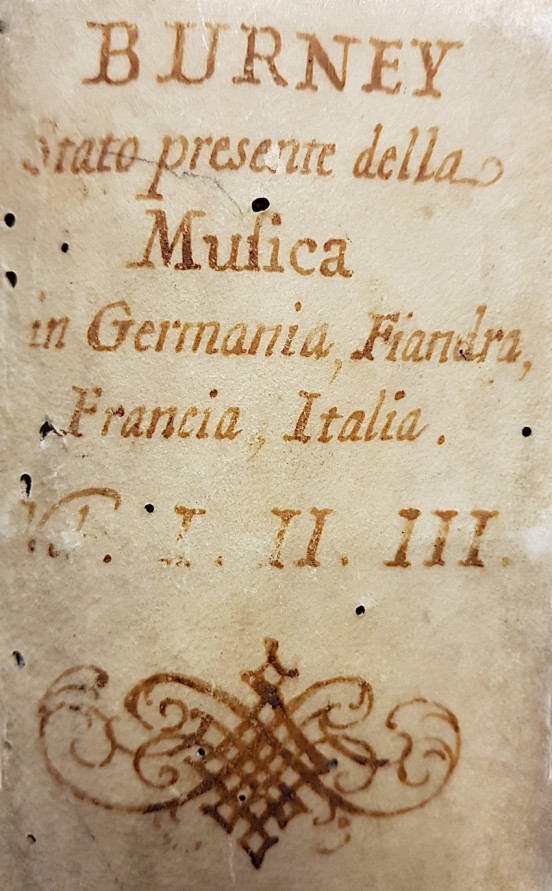 BURNEY
Stato presente della
Muſica
in Germania, Fiandra,
Francia, Italia.
Vol. I. II. III.